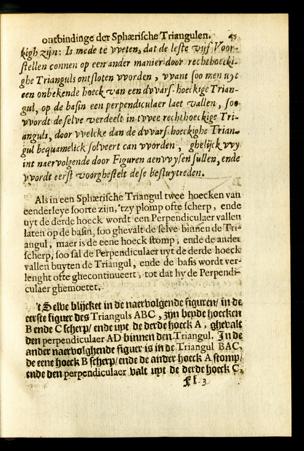 ontbindinge der Sphærische Triangulen. 45
kigh zijn: Is mede te vveten, dat de leste vijf Voor-
stellen connen op een ander manier door rechthoecki-
ghe Trianguls ontsloten vvorden, vvant soo men uyt
een onbekende hoeck van een dvvars-hoeckige Trian-
gul, op de basin een perpendiculaer laet vallen, soo
vvordt de selve verdeelt in tvvee rechthoeckige Tri-
anguls, door vvelcke dan de dvvars-hoeckighe Trian-
gul bequamelick solveert can vvorden, ghelijck vvy
int naervolgende door Figuren aenvvysen sullen, ende
vvordt eerst voorghestelt dese besluytreden.
Als in een Sphærische Triangul twee hoecken van
eenderleye soorte zijn, 'tzy plomp ofte scherp, ende
uyt de derde hoeck wordt een Perpendiculaer vallen
laten op de basin, soo ghevalt de selve binnen de Tri-
angul, maer is de eene hoeck stomp, ende de ander
scherp, soo sal de Perpendiculaer uyt de derde hoeck
vallen buyten de Triangul, ende de basis wordt ver-
lenght ofte ghecontinueert, tot dat hy de Perpendi-
culaer ghemoetet.
't Selve blijcket in de naervolgende figuren/ in de
eerste figuer des Trianguls ABC, zijn beyde hoecken
B ende C scherp/ ende uyt de derde hoeck A, ghevalt
den perpendiculaer AD binnen den Triangul. In de
ander naervolghende figuer is in de Triangul BAC,
de eene hoeck B scherp/ ende de ander hoeck A stomp/
ende den perpendiculaer valt uyt de derde hoeck C,
Ff. 3